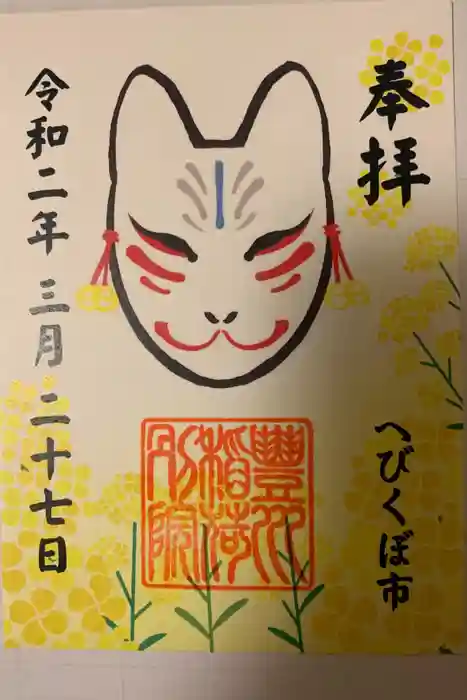 奉拝
へびくぼ市
豐川
稲荷
別院
令和二年三月二十七日